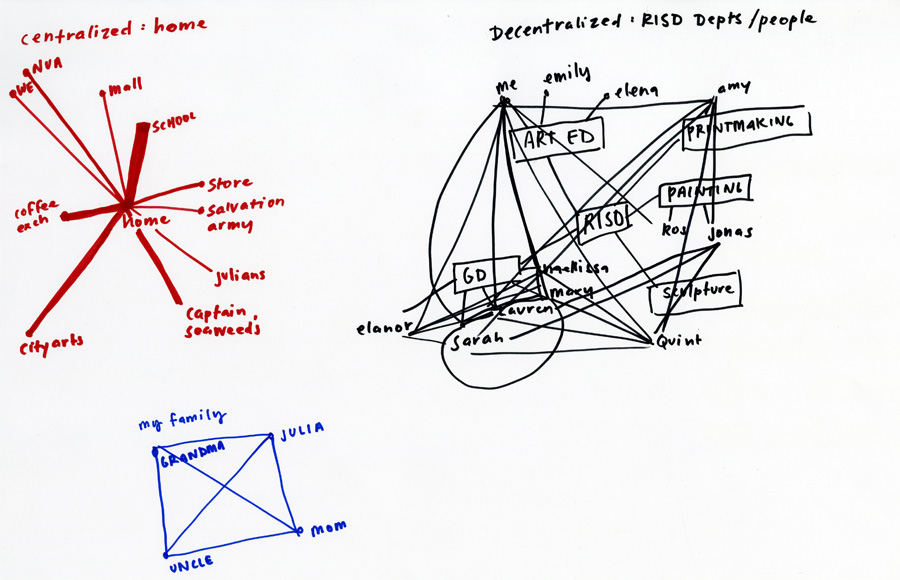 centralized : home
NVA
WE
mall
SCHOOL
store
coffee
exch
home
salvation
army
julians
captain
seaweeds
city arts
Decentralized : RISD Depts / people
me
emily
elena
amy
ART ED
PRINTMAKING
PAINTING
RISD
Ros
Jonas
GD
maelissa
mary
sculpture
Lauren
elanor
Sarah
Quint
my family
JULIA
GRANDMA
MOM
UNCLE